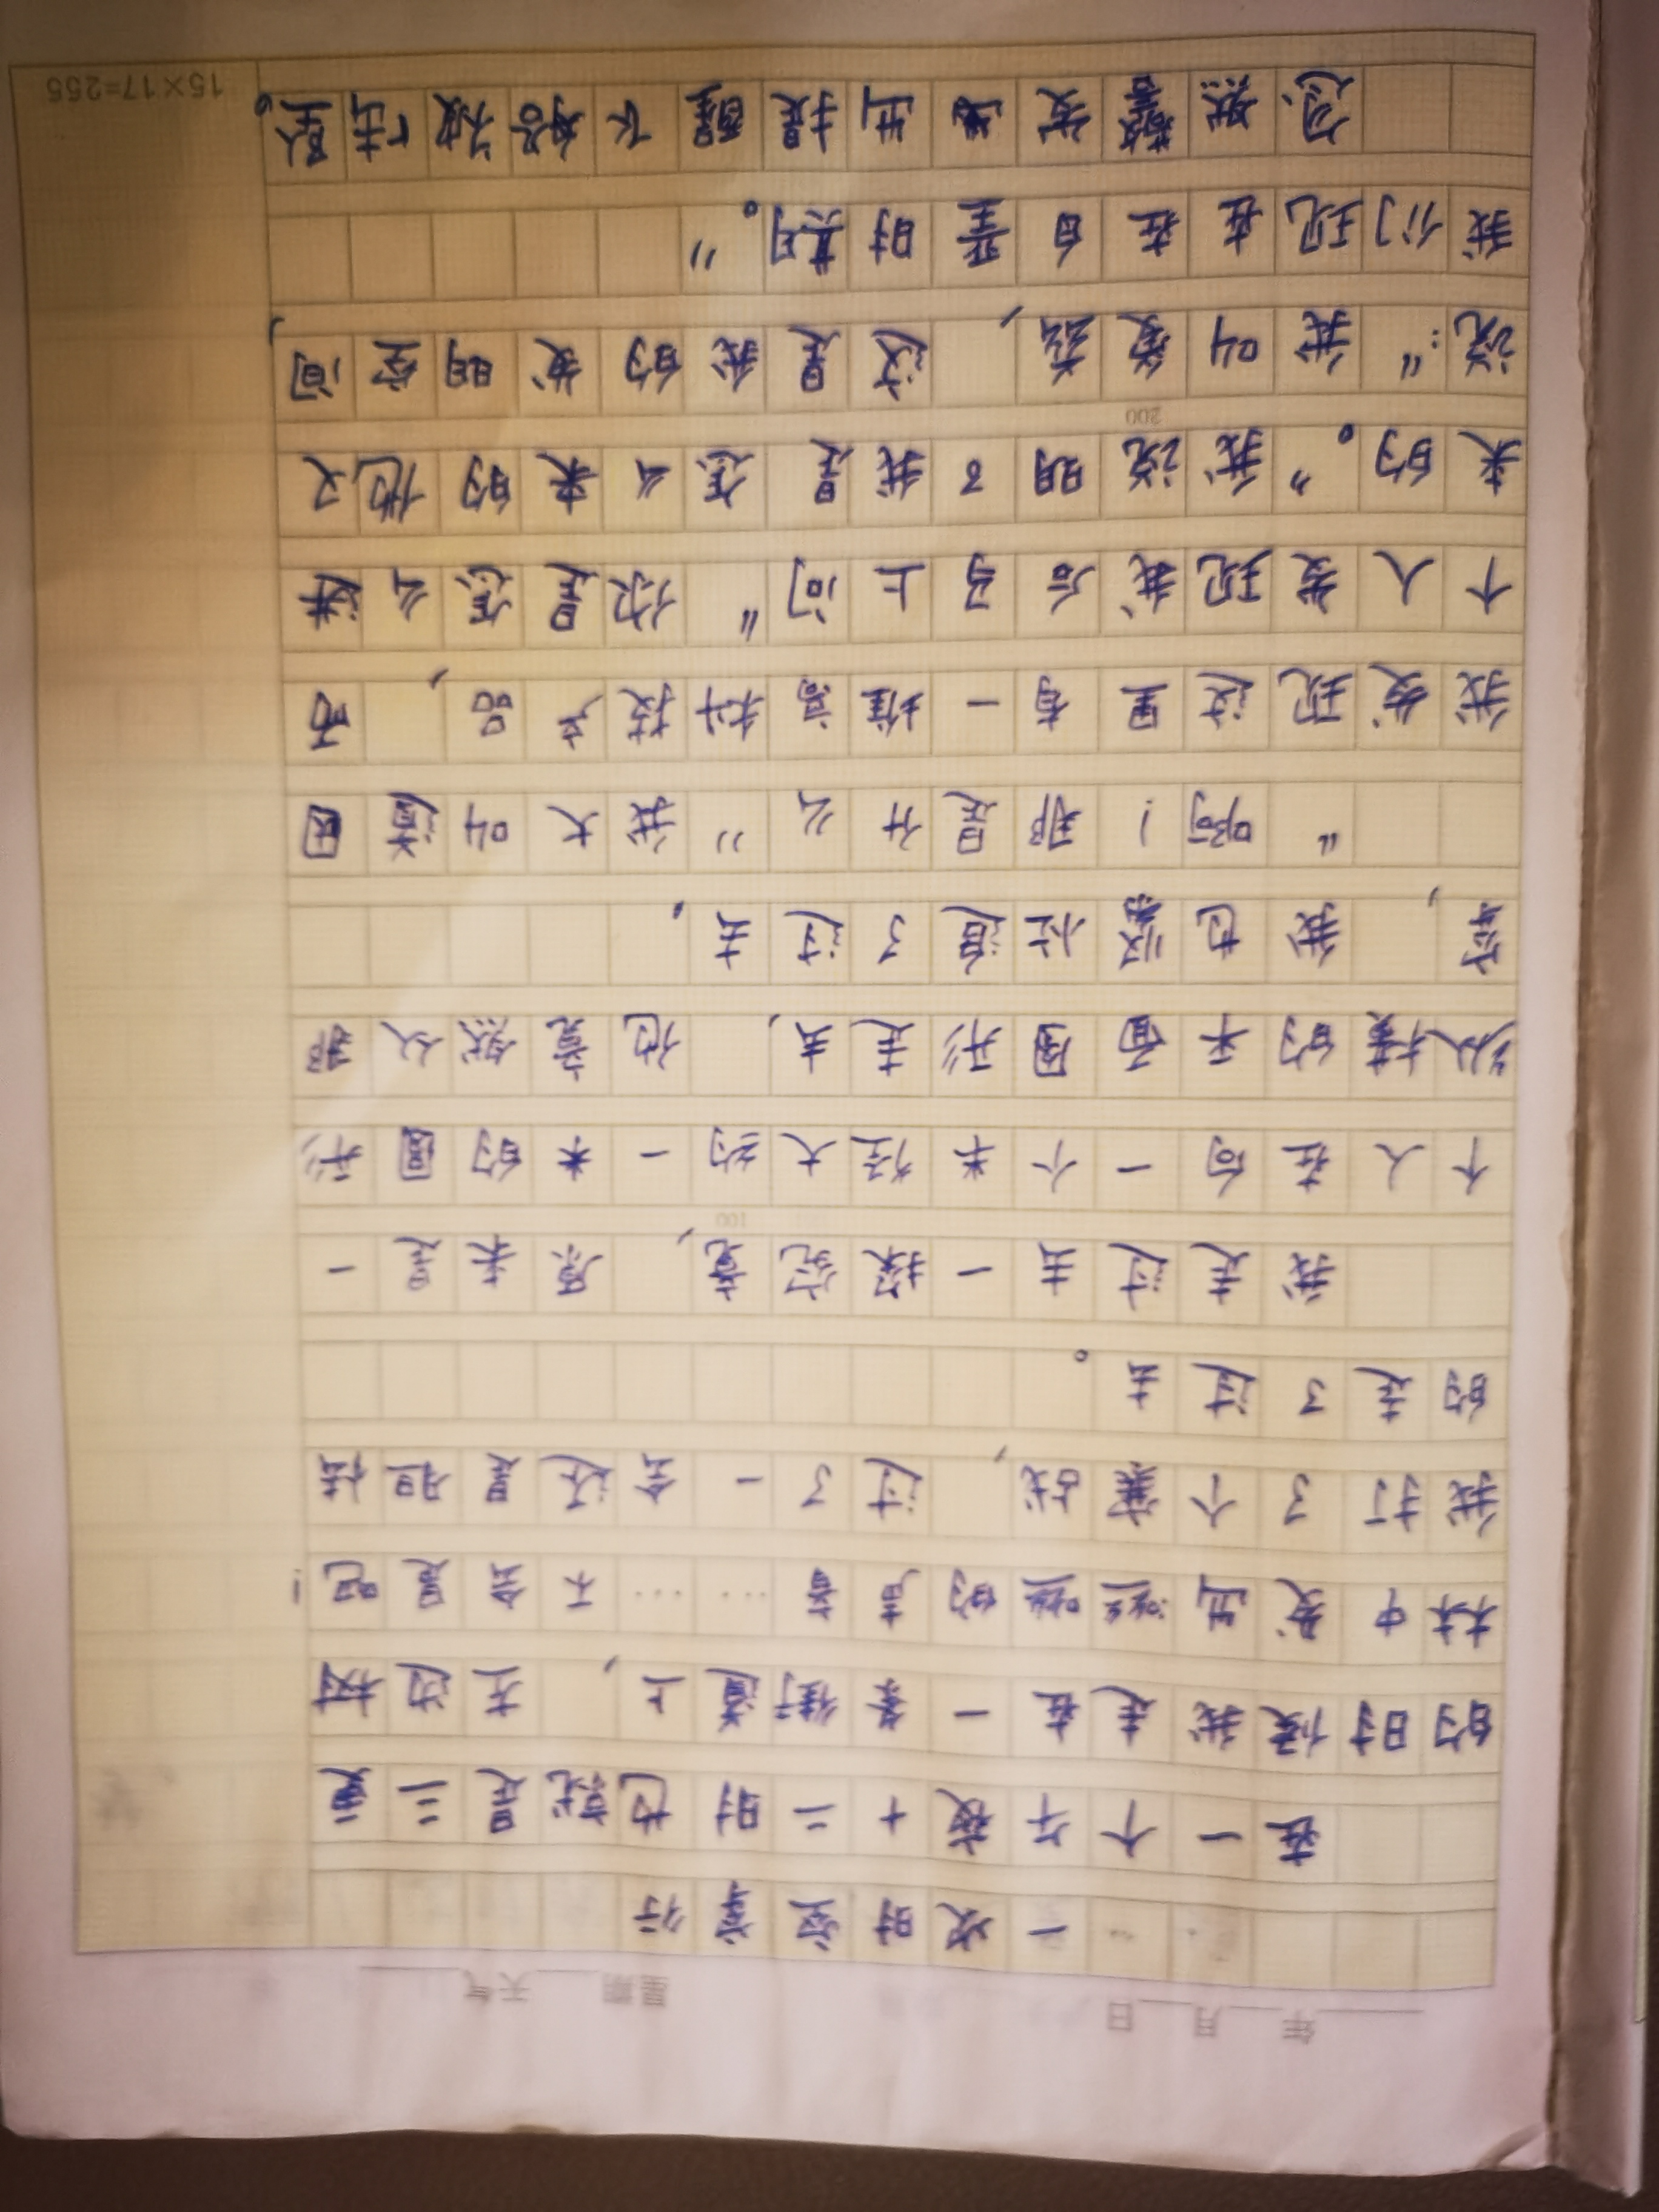 年 月 日 星期 天气
一次时空穿行
在一个午夜十二时也就是三更
的时候我走在一条街道上，左边树
林中发出嗞嗞的声音……不会是吧！
我打了个寒战，过了一会还是胆怯
的走了过去。
我走过去一探究竟，原来是一
100
个人在向一个半径大约一米的圆形
的平面图形走去，他竟然从那
穿，我也紧忙追了过去。
“啊！那是什么”我大叫道因
我发现这里有一堆高科技产品，而
个人发现我后马上问“你是怎么进
来的。”我说明了我是怎么来的他又
200
说：“我叫爱，这是我的发明空间，
我们现在在白垩时期。”
忽然警发出提醒不好被
15×17=255